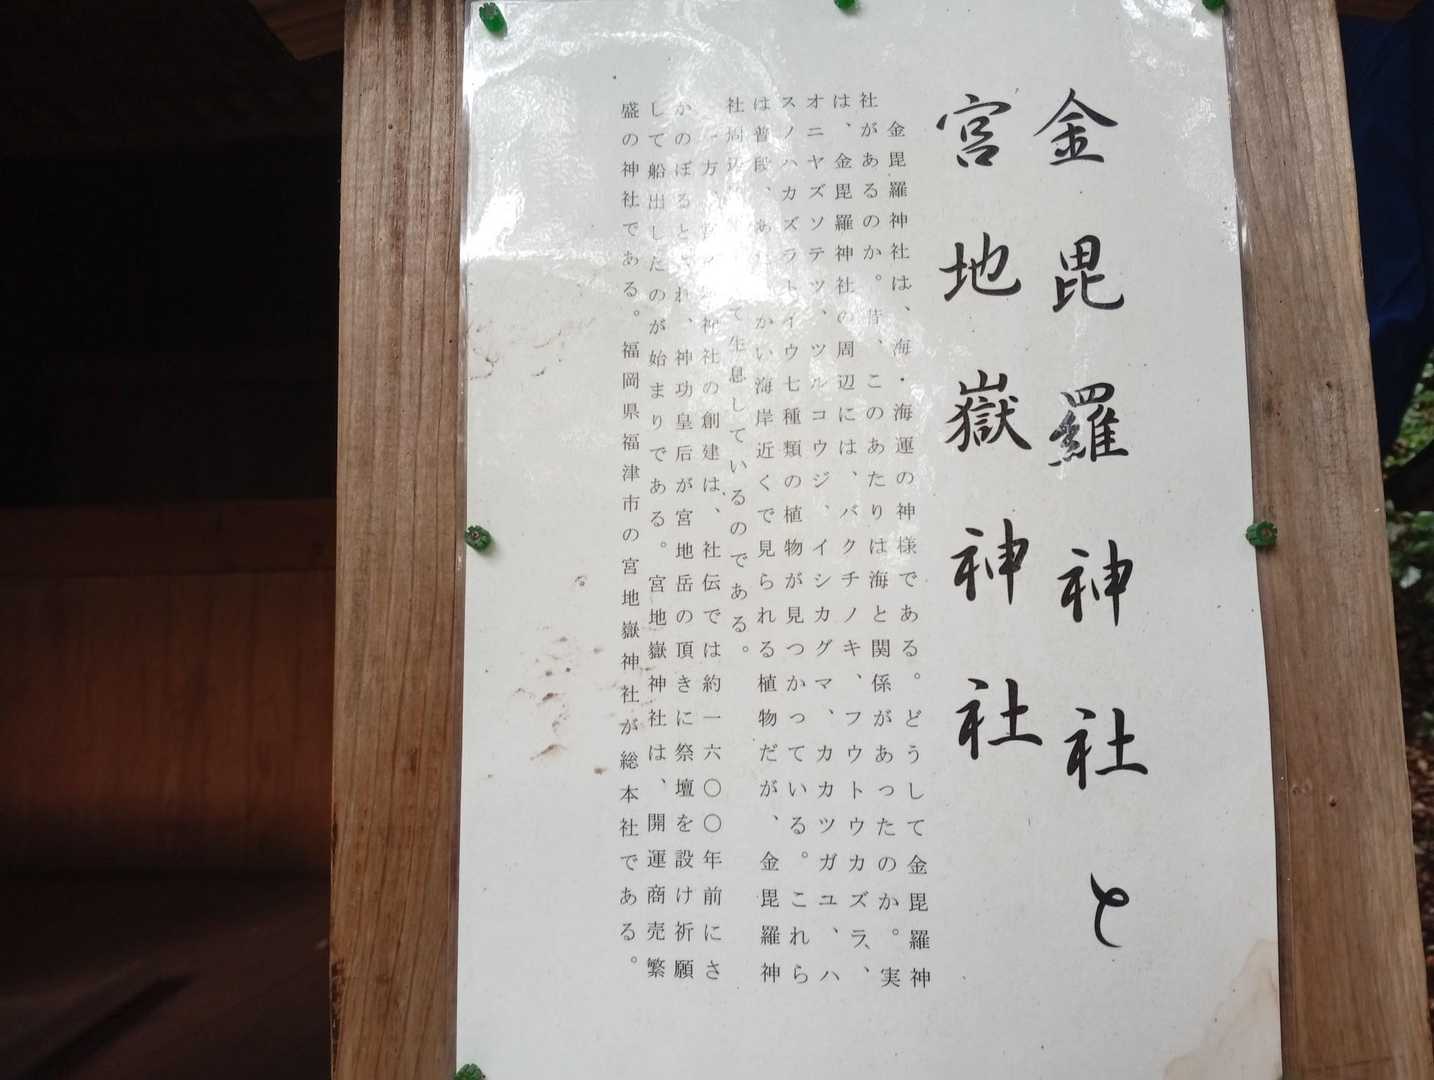 金毘羅神社と
宮地嶽神社
金毘羅神社は、海・海運の神様である。どうして金毘羅神
社があるのか。昔、このあたりは海と関係があったのか。実
は、金毘羅神社の周辺には、バクチノキ、フウトウカズラ、
オニヤズソテツ、ツルコウジ、イシカグマ、カカツガユ、ハ
スノハカズラトイウ七種類の植物が見つかっている。これら
は普段、あ かい海岸近くで見られる植物だが、金毘羅神
社周辺 て生息しているのである。
一方、宮 神社の創建は、社伝では約一六〇〇年前にさ
かのぼるとされ、神功皇后が宮地岳の頂きに祭壇を設け祈願
して船出したのが始まりである。宮地嶽神社は、開運商売繁
盛の神社である。福岡県福津市の宮地嶽神社が総本社である。